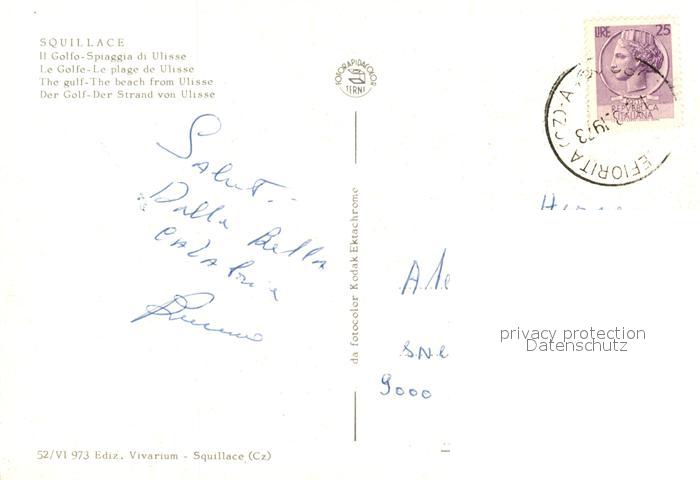 SQUILLACE
Il Golfo-Spiaggia di Ulisse
Le Golfe-Le plage de Ulisse
The gulf-The beach from Ulisse
Der Golf-Der Strand von Ulisse
FOTORAPIDACOLOR
TERNI
LIRE 25
REPUBBLICA
ITALIANA
1973
EFIORITA (CZ)
Saluti
Dalla Bella
Calabria
da fotocolor Kodak Ektachrome
Ale
9000
privacy protection
Datenschutz
52/VI 973 Ediz. Vivarium - Squillace (Cz)